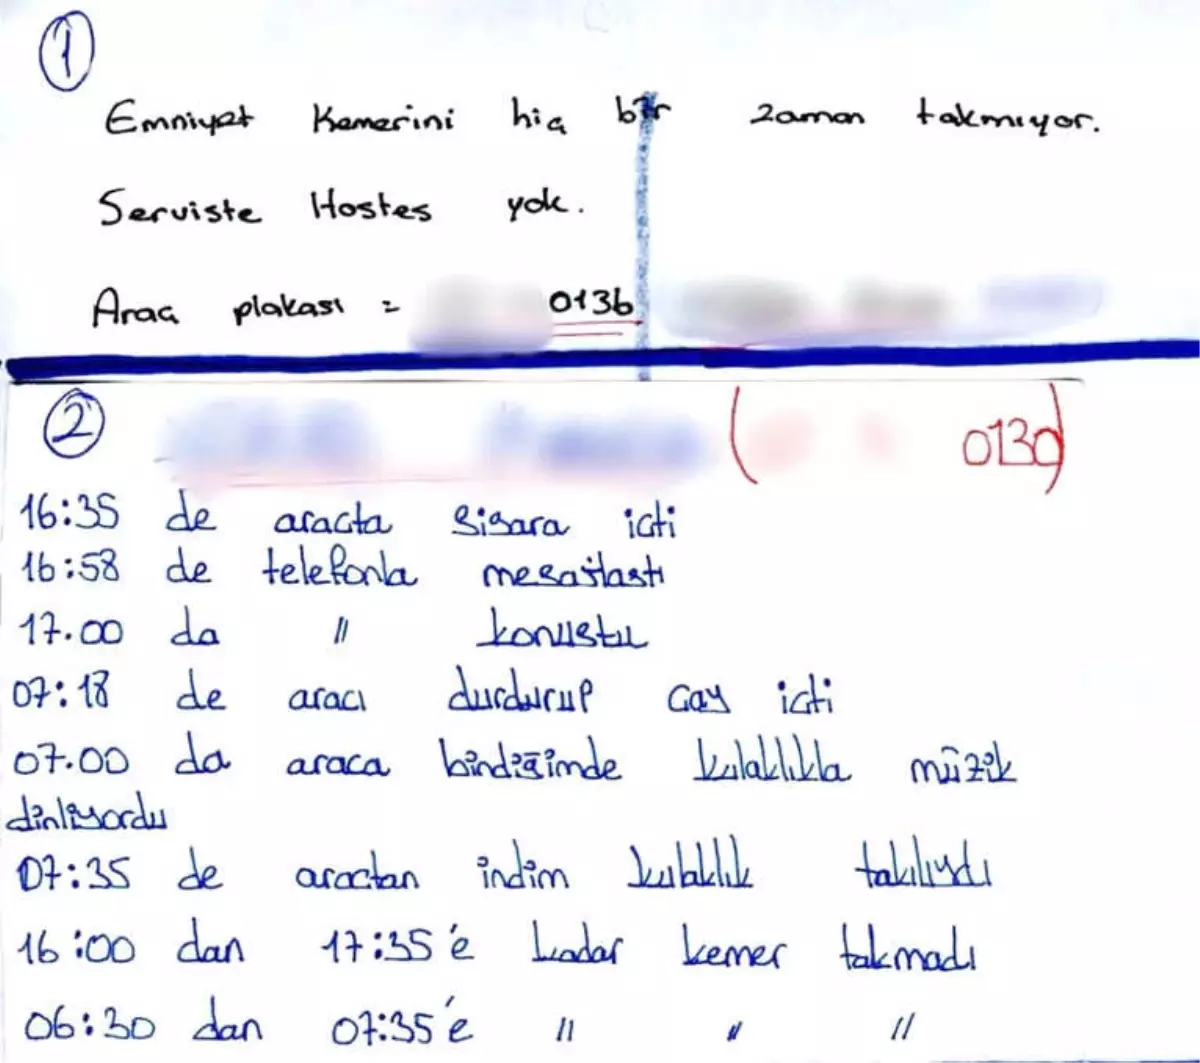 1
Emniyet Kemerini hiç bir zaman takmıyor.
Serviste Hostes yok.
Araç plakası = 0136
2 ( 0130)
16:35 de araçta sigara içti
16:58 de telefonla mesajlastı
17.00 da " konustu
07:18 de aracı durdurup çay içti
07.00 da araca bindiğimde kulaklıkla müzik
dinliyordu
07:35 de araçtan indim kulaklık takılıydı
16:00 dan 17:35'e kadar kemer takmadı
06:30 dan 07:35'e " " "